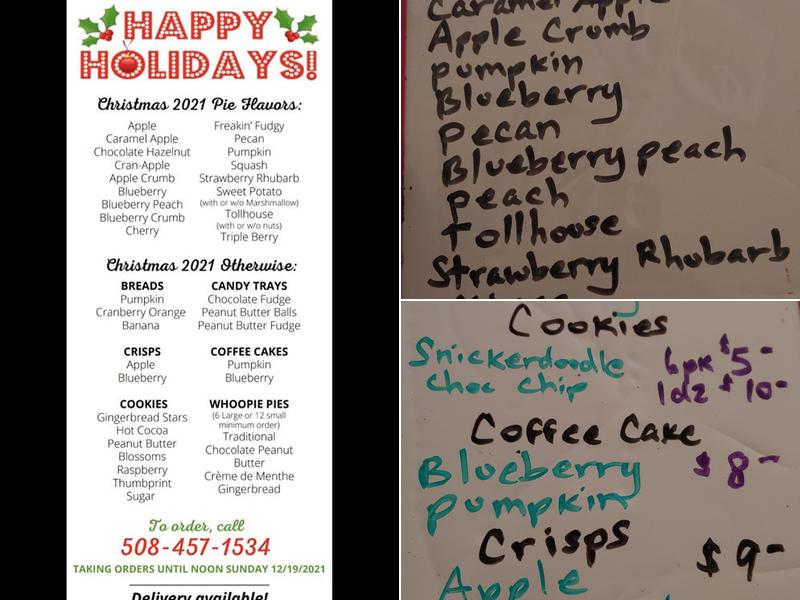 HAPPY
HOLIDAYS!
Christmas 2021 Pie Flavors:
Apple
Caramel Apple
Chocolate Hazelnut
Cran-Apple
Apple Crumb
Blueberry
Blueberry Peach
Blueberry Crumb
Cherry
Freakin' Fudgy
Pecan
Pumpkin
Squash
Strawberry Rhubarb
Sweet Potato
(with or w/o Marshmallow)
Tollhouse
(with or w/o nuts)
Triple Berry
Christmas 2021 Otherwise:
BREADS
Pumpkin
Cranberry Orange
Banana
CANDY TRAYS
Chocolate Fudge
Peanut Butter Balls
Peanut Butter Fudge
CRISPS
Apple
Blueberry
COFFEE CAKES
Pumpkin
Blueberry
COOKIES
Gingerbread Stars
Hot Cocoa
Peanut Butter
Blossoms
Raspberry
Thumbprint
Sugar
WHOOPIE PIES
(6 Large or 12 small
minimum order)
Traditional
Chocolate Peanut
Butter
Crème de Menthe
Gingerbread
To order, call
508-457-1534
TAKING ORDERS UNTIL NOON SUNDAY 12/19/2021
Delivery available!
Caramel Apple
Apple Crumb
pumpkin
Blueberry
pecan
Blueberry peach
peach
Tollhouse
Strawberry Rhubarb
Cookies
Snickerdoodle 6pk $5-
Choc Chip 1dz $10-
Coffee Cake
Blueberry $8-
pumpkin
Crisps
$9-
Apple